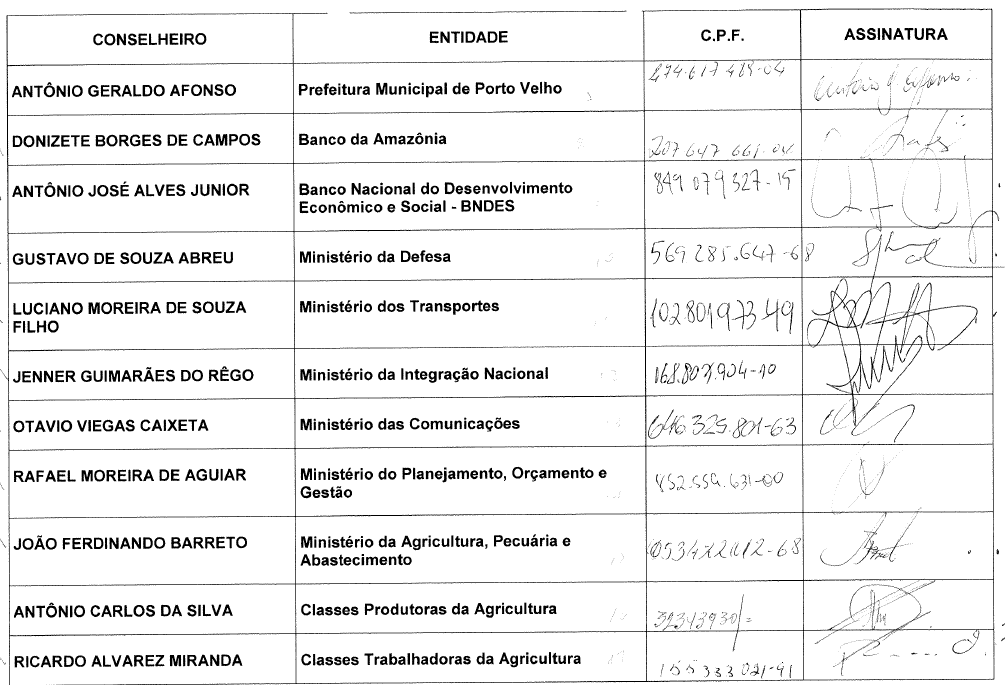 CONSELHEIRO ENTIDADE C.P.F. ASSINATURA
ANTÔNIO GERALDO AFONSO Prefeitura Municipal de Porto Velho 274.617.489-04
DONIZETE BORGES DE CAMPOS Banco da Amazônia 207647661-04
ANTÔNIO JOSÉ ALVES JUNIOR Banco Nacional do Desenvolvimento 849079327-15
Econômico e Social - BNDES
GUSTAVO DE SOUZA ABREU Ministério da Defesa 569285.647-68
LUCIANO MOREIRA DE SOUZA Ministério dos Transportes 10280197349
FILHO
JENNER GUIMARÃES DO RÊGO Ministério da Integração Nacional
OTAVIO VIEGAS CAIXETA Ministério das Comunicações 646325.801-63
RAFAEL MOREIRA DE AGUIAR Ministério do Planejamento, Orçamento e 852.559.631-00
Gestão
JOÃO FERDINANDO BARRETO Ministério da Agricultura, Pecuária e
Abastecimento
ANTÔNIO CARLOS DA SILVA Classes Produtoras da Agricultura
RICARDO ALVAREZ MIRANDA Classes Trabalhadoras da Agricultura 155333021-91